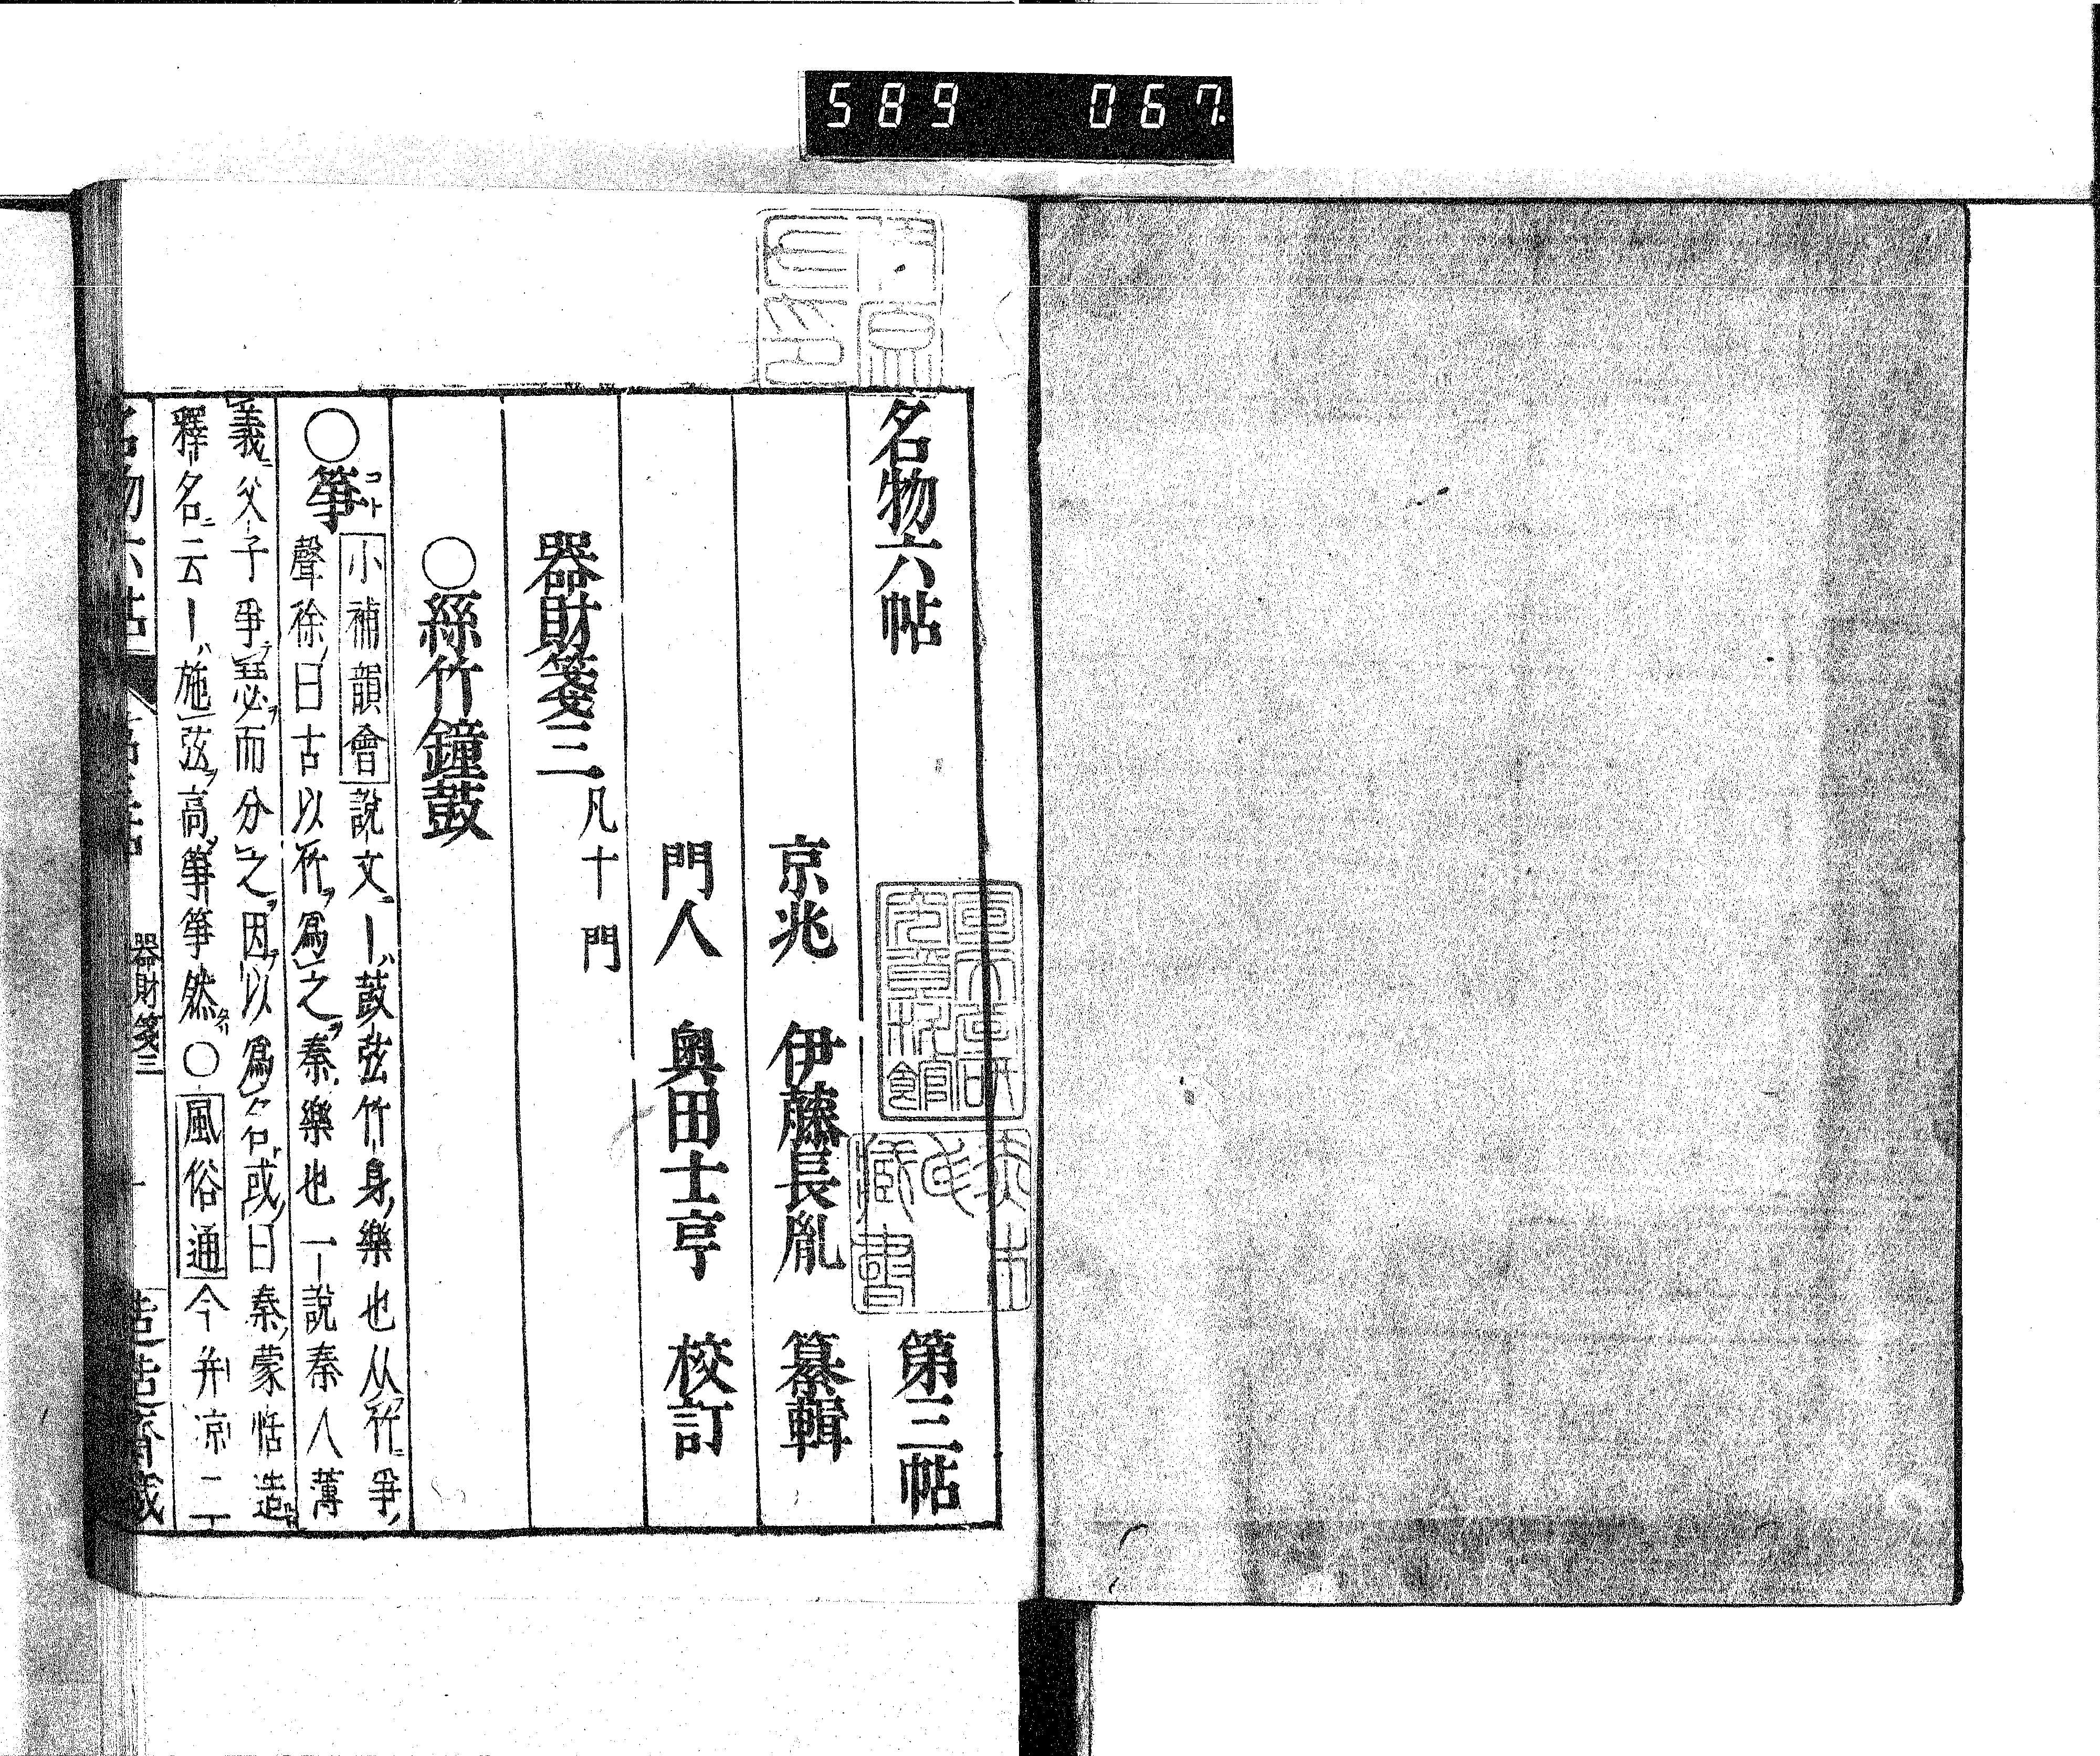 589 067.
名物六帖 第三帖
京兆 伊藤長胤 纂輯
門人 奥田士亨 校訂
器財箋三 凡十門
○絲竹鐘鼓
○箏 コト
小補韻會 說文ー鼓弦竹身樂也从竹爭
聲徐曰古以竹爲之秦樂也一說秦人薄
義父子爭瑟而分之因以爲名或曰秦蒙恬造
釋名云ー施弦高箏箏然○風俗通今并凉二
名物六帖 器財箋三